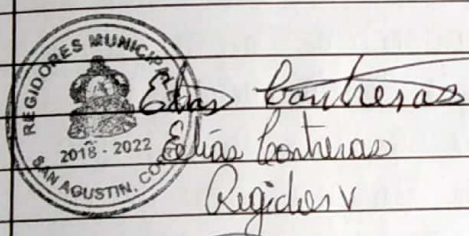 REGIDORES MUNICIPAL
2018 - 2022
SAN AGUSTIN, CO
Elias Contreras
Eelias Contreras
Regidor V